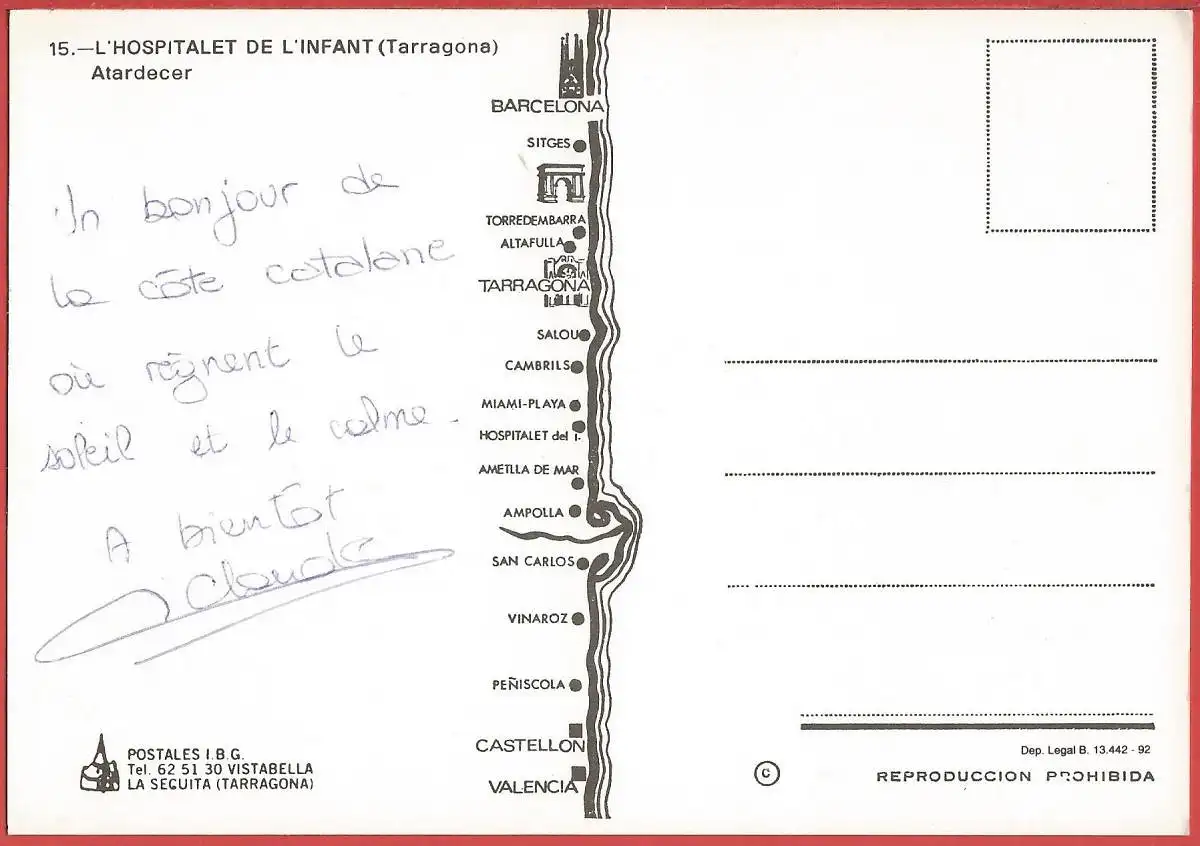 15.—L'HOSPITALET DE L'INFANT (Tarragona)
Atardecer
Un bonjour de
la côte catalane
où règnent le
soleil et le calme.
A bientôt
Claude
POSTALES I.B.G.
Tel. 62 51 30 VISTABELLA
LA SECUITA (TARRAGONA)
BARCELONA
SITGES
TORREDEMBARRA
ALTAFULLA
TARRAGONA
SALOU
CAMBRILS
MIAMI-PLAYA
HOSPITALET del I.
AMETLLA DE MAR
AMPOLLA
SAN CARLOS
VINAROZ
PEÑISCOLA
CASTELLON
VALENCIA
Dep. Legal B. 13.442 - 92
© REPRODUCCION PROHIBIDA